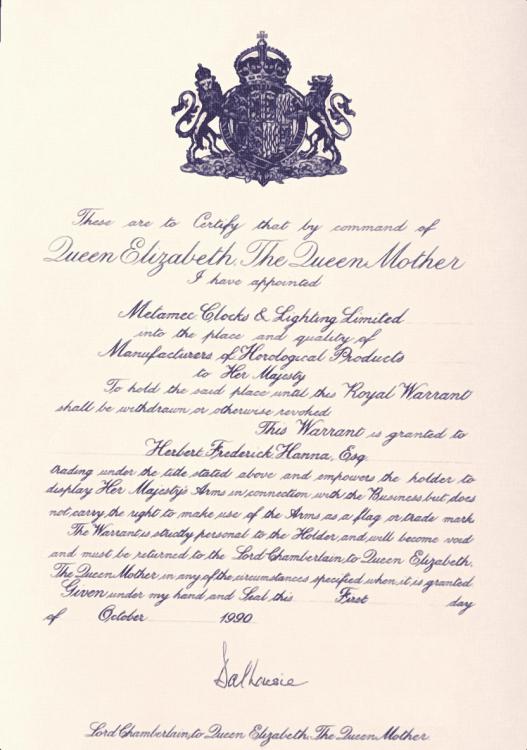 These are to Certify that by command of
Queen Elizabeth The Queen Mother
I have appointed
Metamec Clocks & Lighting Limited
into the place and quality of
Manufacturers of Horological Products
to Her Majesty
To hold the said place until this Royal Warrant
shall be withdrawn or otherwise revoked
This Warrant is granted to
Herbert Frederick Hanna, Esq
trading under the title stated above and empowers the holder to
display Her Majesty's Arms in connection with the Business but does
not carry the right to make use of the Arms as a flag or trade mark
The Warrant is strictly personal to the Holder and will become void
and must be returned to the Lord Chamberlain to Queen Elizabeth
The Queen Mother in any of the circumstances specified when it is granted
Given under my hand and Seal this First day
of October 1990
Dalhousie
Lord Chamberlain to Queen Elizabeth The Queen Mother